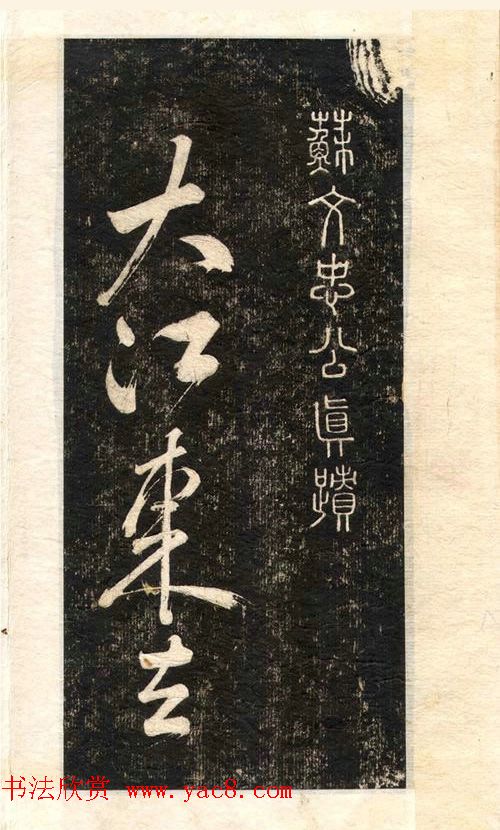 蘇文忠公真蹟
大江東去
书法欣赏 www.yac8.com